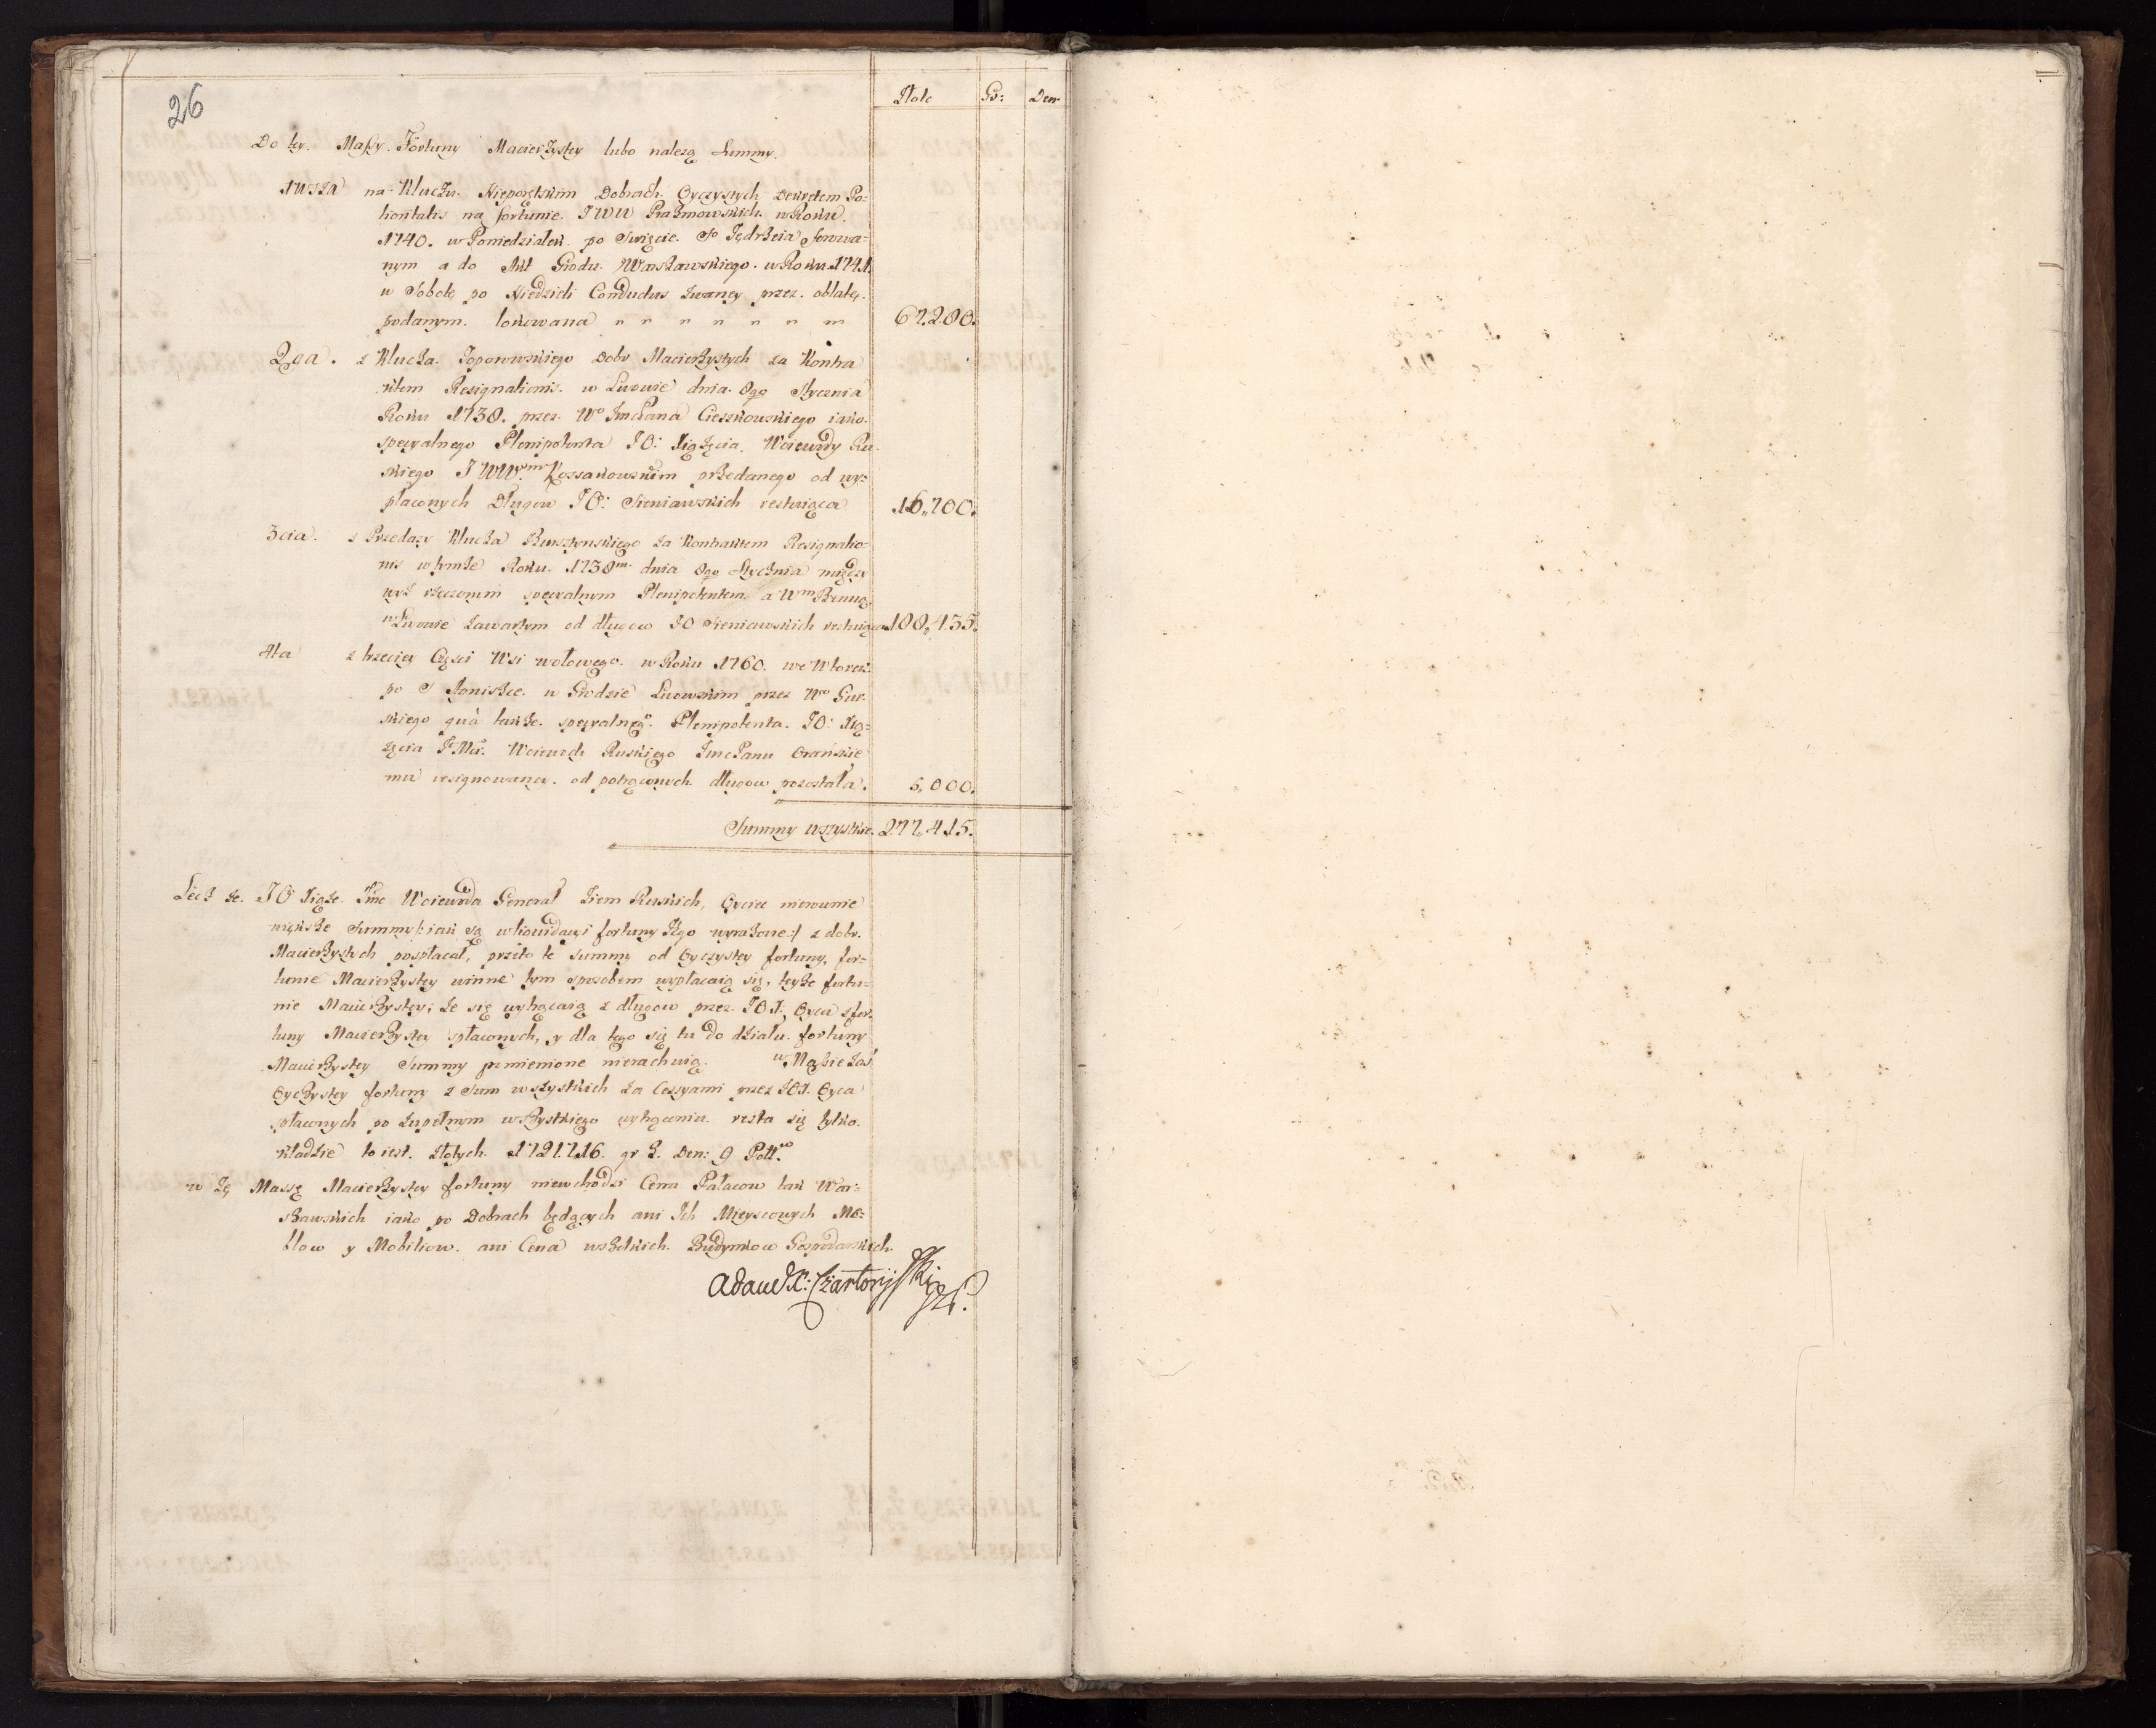 26
Złote Gr: Den
Do tey. Massy. Fortuny Macierzystey lubo należą Summy.
1wsza na Kluczu. Nieporętskim Dobrach. Oyczystych Dekretem Po=
tioritatis na fortunie. JWW Prażmowskich. w Roku.
1740. w Poniedziałek. po Swięcie. So Jędrzeia ferowa=
nym a do Akt Grodu. Warszawskiego. w Roku 1741.
w Sobotę po Niedzieli Conductus zwaney przez. oblatę.
podanym. lokowana " " " " " " " 67.280.
2ga. z Klucza. Toporowskiego Dobr Macierzystych za Kontra
ktem Resignationis. w Lwowie dnia. 8go Stycznia
Roku 1738. przez. Wo ImcPana Cieszkowskiego iako.
specyalnego Plenipotenta JO: Xiążęcia. Woiewody Ru.
skiego JWW. Kossakowskim przedanego od wy=
płaconych Długow JO: Sieniawskich restuiąca 16,700.
3cia. z Przedazy Klucza Bursztynskiego za Kontraktem Resignatio=
nis w tymże Roku. 1738m dnia 8go Stycznia między
wyż rzeczonym specyalnym Plenipotentem a Wm
w Lwowie zawartym od długow JO Sieniawskich restuiąca 188,435.
4ta z trzeciey Częsci Wsi wołowego. w Roku 1760. we Wtorek.
po S Stanisze. w Grodzie Lwowskim przez Wo Gur.
skiego quà także. specyalneg. Plenipotenta. JO: Xią=
żęcia Woiewody Ruskiego ImcPanu Oranskie
mu resignowaney. od potrąconych długow pozostała. 5,000.
Summy wszystkie. 277,415.
Lecz że. JO Xiąże. Imc Woiewoda Generał Ziem Ruskich, Oyciec niewunie
niększe Summy /: iak są w liquidacyi fortuny Jego wyrażone :/ z dobr.
Macierzystych pospłacał, przeto te Summy od Oyczystey fortuny, for=
tunie Macierzystey winne tym sposobem wypłacaią się, teyże fortu=
nie Macierzystey; że się wytrącaią z długow przez. JOX: Oyca z for.
tuny Macierzystey spłaconych, y dla tego się tu do działu. fortuny
Macierzystey Summy pomienione nierachuią. w Massie zaś
Oyczystey fortuny z Sum wszystkich za Cessyami przez JOX. Oyca
spłaconych po zupełnym wszystkiego wytrąceniu. resta się tylko.
kładzie to iest. złotych. 1721.716. gr 3. Den: 9 Poł.
w Tę Massę Macierzystey fortuny niewchodzi Cena Pałacow tak War=
szawskich iako po Dobrach będących ani Ich Mieyscowych Me=
blow y Mobiliow. ani Cena wszelkich. Budynkow Gospodarskich.
Adam X: Czartoryski